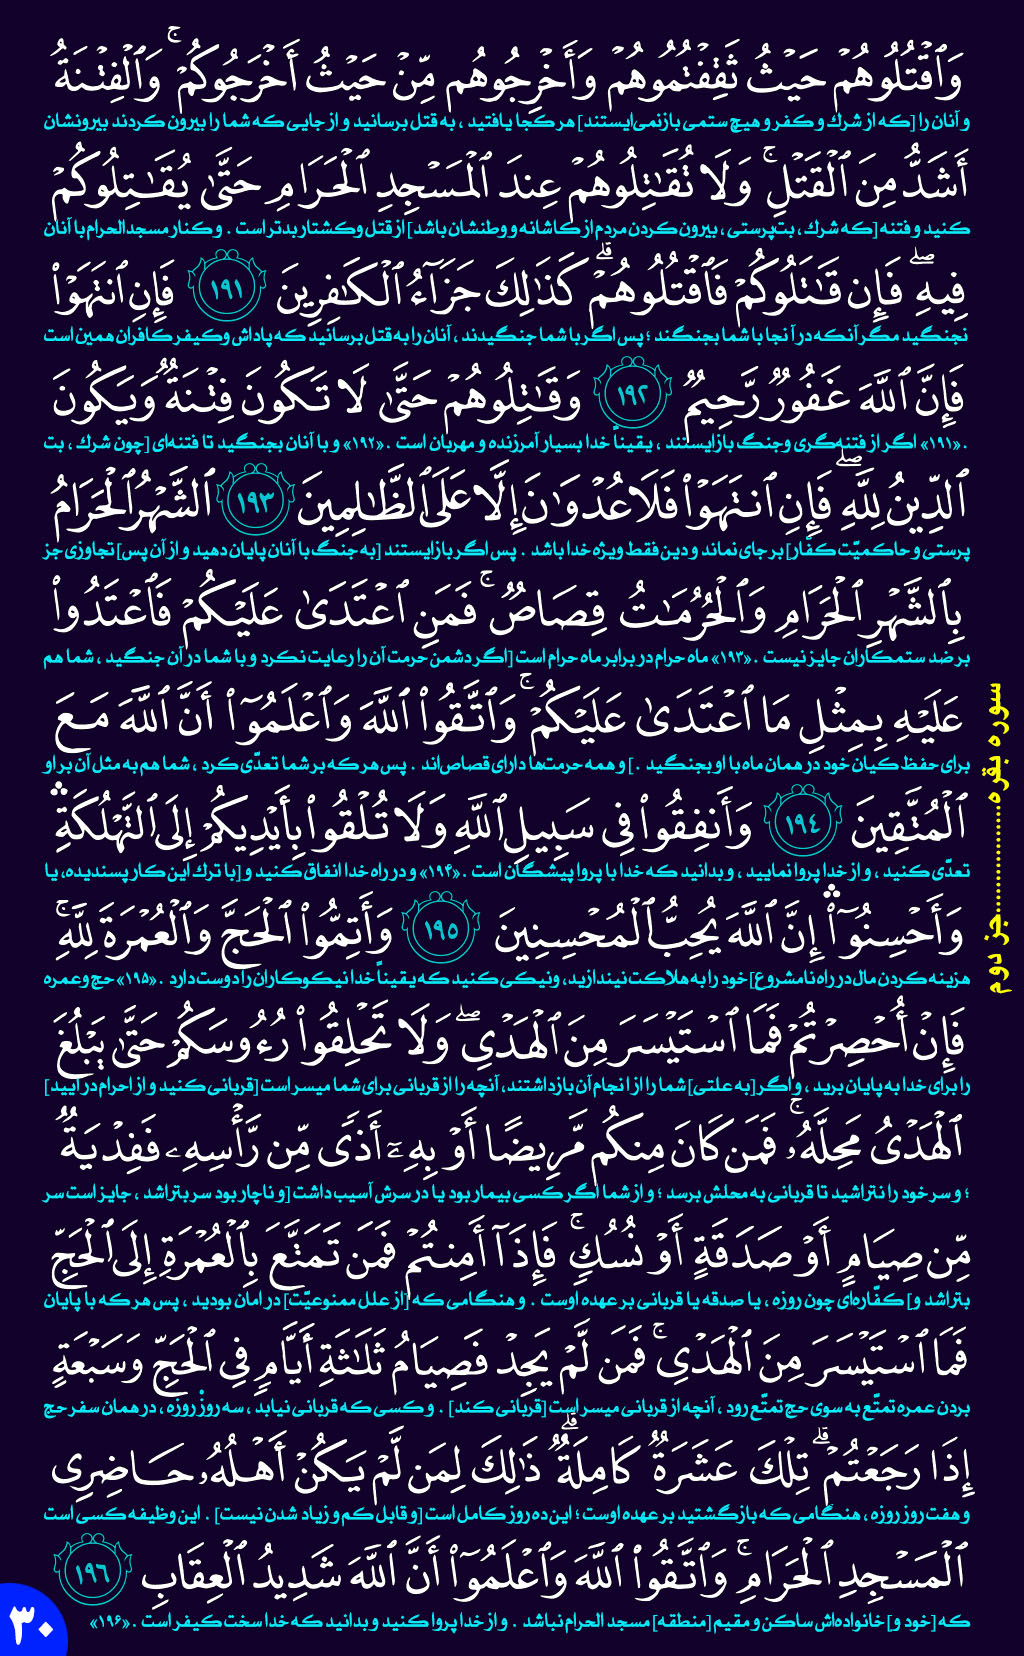 وَٱقۡتُلُوهُمۡ حَيۡثُ ثَقِفۡتُمُوهُمۡ وَأَخۡرِجُوهُم مِّنۡ حَيۡثُ أَخۡرَجُوكُمۡۚ وَٱلۡفِتۡنَةُ
و آنان را [که از شرك و کفر و هیچ ستمی بازنمی‌ایستند] هر کجا یافتید ، به قتل برسانید و از جایی که شما را بیرون کردند بیرونشان
أَشَدُّ مِنَ ٱلۡقَتۡلِۚ وَلَا تُقَٰتِلُوهُمۡ عِندَ ٱلۡمَسۡجِدِ ٱلۡحَرَامِ حَتَّىٰ يُقَٰتِلُوكُمۡ
کنید و فتنه [که شرك ، بت‌پرستی ، بیرون کردن مردم از کاشانه و وطنشان باشد] از قتل و کشتار بدتر است . و کنار مسجدالحرام با آنان
فِيهِۖ فَإِن قَٰتَلُوكُمۡ فَٱقۡتُلُوهُمۡۗ كَذَٰلِكَ جَزَآءُ ٱلۡكَٰفِرِينَ ١٩١ فَإِنِ ٱنتَهَوۡاْ
نجنگید مگر آنکه در آنجا با شما بجنگند ؛ پس اگر با شما جنگیدند ، آنان را به قتل برسانید که پاداش و کیفر کافران همین است
فَإِنَّ ٱللَّهَ غَفُورٞ رَّحِيمٞ ١٩٢ وَقَٰتِلُوهُمۡ حَتَّىٰ لَا تَكُونَ فِتۡنَةٞ وَيَكُونَ
.«۱۹۱» اگر از فتنه‌گری و جنگ بازایستند ، یقیناً خدا بسیار آمرزنده و مهربان است .«۱۹۲» و با آنان بجنگید تا فتنه‌ای [چون شرك ، بت
ٱلدِّينُ لِلَّهِۖ فَإِنِ ٱنتَهَوۡاْ فَلَا عُدۡوَٰنَ إِلَّا عَلَى ٱلظَّٰلِمِينَ ١٩٣ ٱلشَّهۡرُ ٱلۡحَرَامُ
پرستی و حاکمیّت کفّار] بر جای نماند و دین فقط ویژه خدا باشد . پس اگر بازایستند [به جنگ با آنان پایان دهید و از آن پس] تجاوزی جز
بِٱلشَّهۡرِ ٱلۡحَرَامِ وَٱلۡحُرُمَٰتُ قِصَاصٞۚ فَمَنِ ٱعۡتَدَىٰ عَلَيۡكُمۡ فَٱعۡتَدُواْ
بر ضد ستمکاران جایز نیست .«۱۹۳» ماه حرام در برابر ماه حرام است [اگر دشمن حرمت آن را رعایت نکرد و با شما در آن جنگید ، شما هم
عَلَيۡهِ بِمِثۡلِ مَا ٱعۡتَدَىٰ عَلَيۡكُمۡۚ وَٱتَّقُواْ ٱللَّهَ وَٱعۡلَمُوٓاْ أَنَّ ٱللَّهَ مَعَ
برای حفظ کیان خود در همان ماه با او بجنگید . ] و همه حرمت‌ها دارای قصاص‌اند . پس هر که بر شما تعدّی کرد ، شما هم به مثل آن بر او
ٱلۡمُتَّقِينَ ١٩٤ وَأَنفِقُواْ فِي سَبِيلِ ٱللَّهِ وَلَا تُلۡقُواْ بِأَيۡدِيكُمۡ إِلَى ٱلتَّهۡلُكَةِۛ
تعدّی کنید ، و از خدا پروا نمایید ، و بدانید که خدا با پروا پیشگان است .«۱۹۴» و در راه خدا انفاق کنید و [با ترك این کار پسندیده، یا
وَأَحۡسِنُوٓاْۛ إِنَّ ٱللَّهَ يُحِبُّ ٱلۡمُحۡسِنِينَ ١٩٥ وَأَتِمُّواْ ٱلۡحَجَّ وَٱلۡعُمۡرَةَ لِلَّهِۚ
هزینه کردن مال در راه نامشروع] خود را به هلاکت نیندازید، و نیکی کنید که یقیناً خدا نیکوکاران را دوست دارد .«۱۹۵» حج و عمره
فَإِنۡ أُحۡصِرۡتُمۡ فَمَا ٱسۡتَيۡسَرَ مِنَ ٱلۡهَدۡيِۖ وَلَا تَحۡلِقُواْ رُءُوسَكُمۡ حَتَّىٰ يَبۡلُغَ
را برای خدا به پایان برید ، و اگر [به علتی] شما را از انجام آن بازداشتند، آنچه را از قربانی برای شما میسر است [قربانی کنید و از احرام درآیید]
ٱلۡهَدۡيُ مَحِلَّهُۥۚ فَمَن كَانَ مِنكُم مَّرِيضًا أَوۡ بِهِۦٓ أَذٗى مِّن رَّأۡسِهِۦ فَفِدۡيَةٞ
؛ و سر خود را نتراشید تا قربانی به محلش برسد ؛ و از شما اگر کسی بیمار بود یا در سرش آسیب داشت [و ناچار بود سر بتراشد ، جایز است سر
مِّن صِيَامٍ أَوۡ صَدَقَةٍ أَوۡ نُسُكٖۚ فَإِذَآ أَمِنتُمۡ فَمَن تَمَتَّعَ بِٱلۡعُمۡرَةِ إِلَى ٱلۡحَجِّ
بتراشد و] کفّاره‌ای چون روزه ، یا صدقه یا قربانی بر عهده اوست . و هنگامی که [از علل ممنوعیّت] در امان بودید ، پس هر که با پایان
فَمَا ٱسۡتَيۡسَرَ مِنَ ٱلۡهَدۡيِۚ فَمَن لَّمۡ يَجِدۡ فَصِيَامُ ثَلَٰثَةِ أَيَّامٖ فِي ٱلۡحَجِّ وَسَبۡعَةٍ
بردن عمره تمتّع به سوی حج تمتّع رود ، آنچه از قربانی میسر است [قربانی کند] . و کسی که قربانی نیابد ، سه روزْ روزه ، در همان سفر حج
إِذَا رَجَعۡتُمۡۗ تِلۡكَ عَشَرَةٞ كَامِلَةٞۗ ذَٰلِكَ لِمَن لَّمۡ يَكُنۡ أَهۡلُهُۥ حَاضِرِي
و هفت روز روزه ، هنگامی که بازگشتید بر عهده اوست ؛ این ده روز کامل است [و قابل کم و زیاد شدن نیست] . این وظیفه کسی است
ٱلۡمَسۡجِدِ ٱلۡحَرَامِۚ وَٱتَّقُواْ ٱللَّهَ وَٱعۡلَمُوٓاْ أَنَّ ٱللَّهَ شَدِيدُ ٱلۡعِقَابِ ١٩٦
که [خود و] خانواده‌اش ساکن و مقیم [منطقه] مسجد الحرام نباشد . و از خدا پروا کنید و بدانید که خدا سخت کیفر است .«۱۹۶»
سوره بقره.................جز دوم
۳۰